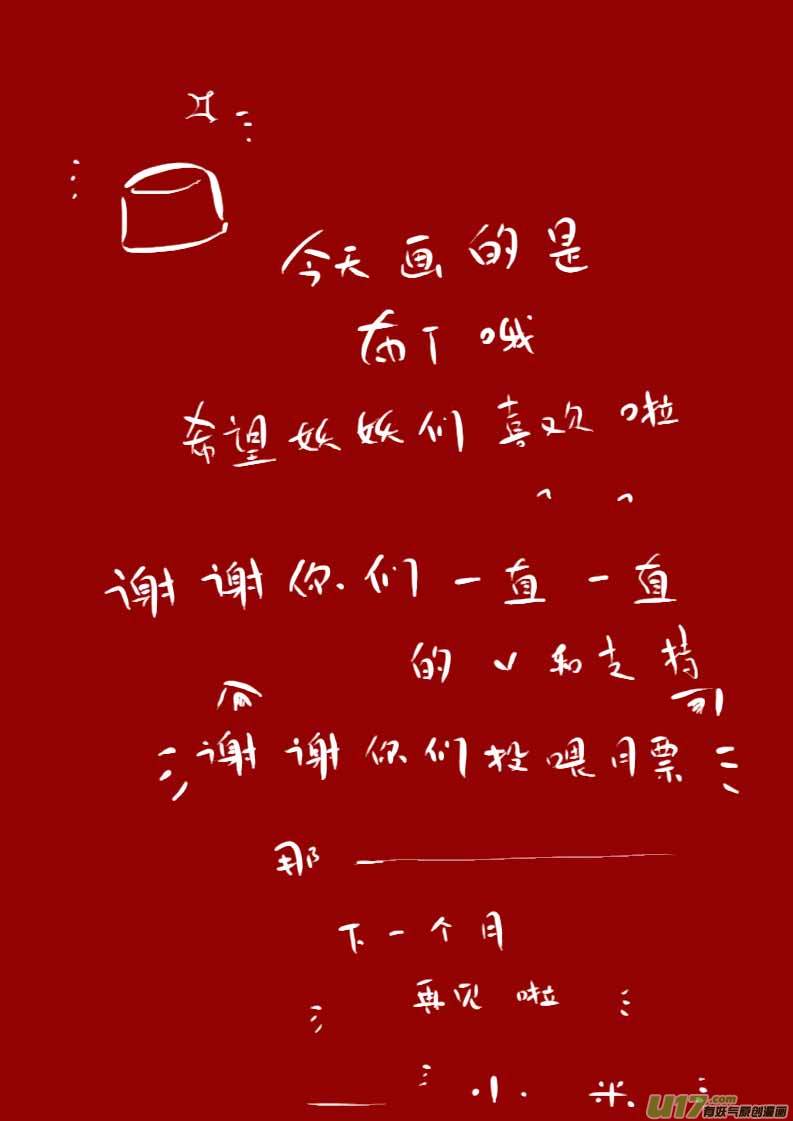 今天画的是
布丁哦
希望妖妖们喜欢啦
谢谢你们一直一直
的 和支持
谢谢你们投喂月票
那——
下一个月
再见啦
小米
U17.com
有妖气原创漫画